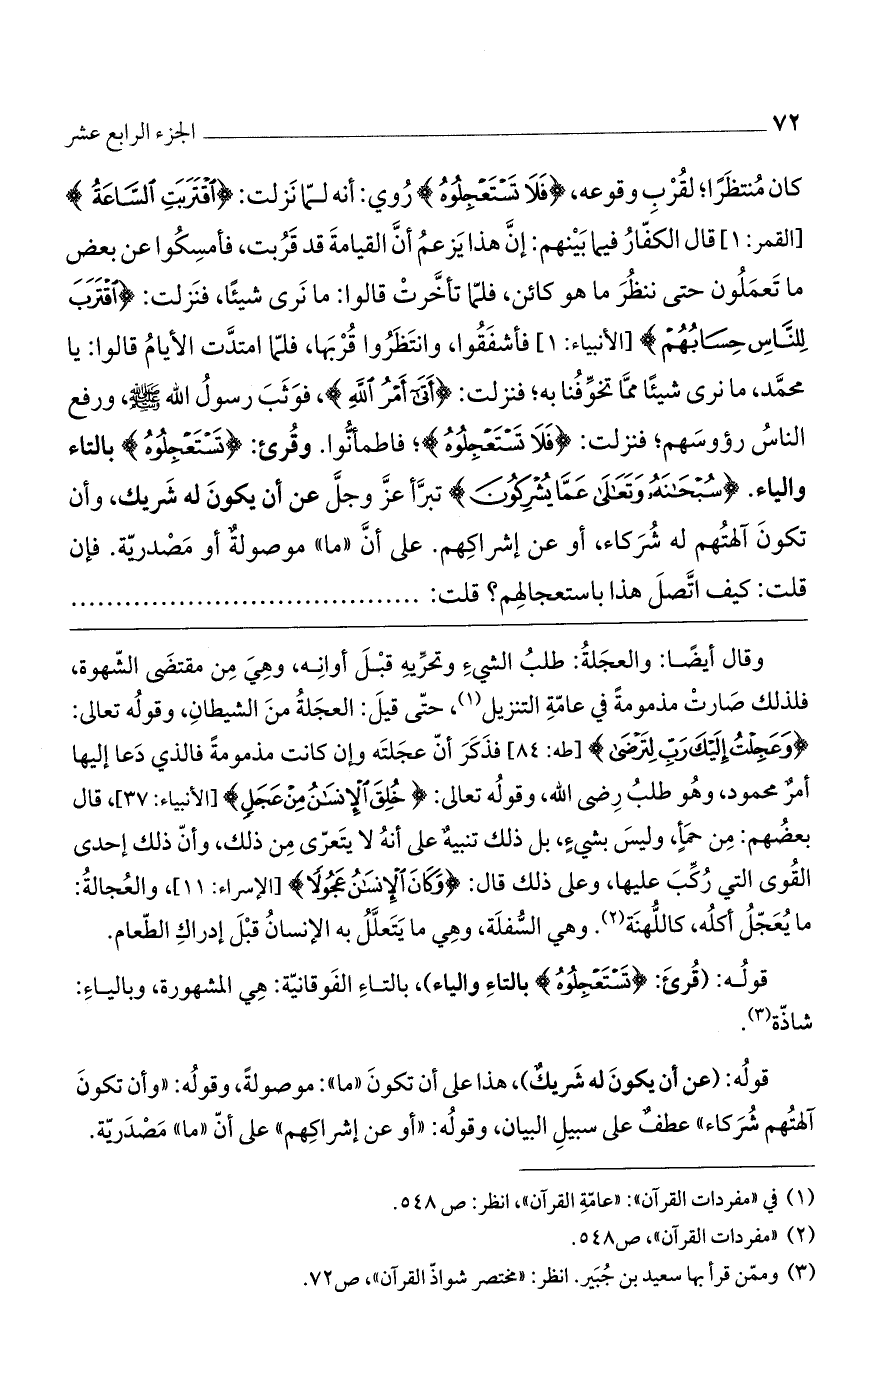 ٧٢ الجزء الرابع عشر
كان مُنتظَرًا؛ لقُرْبِ وقوعه، ﴿فَلَا تَسْتَعْجِلُوهُ﴾ رُوي: أنه لـمّا نَزلت: ﴿ٱقْتَرَبَتِ ٱلسَّاعَةُ﴾
[القمر: ١] قال الكفّارُ فيما بَيْنهم: إنَّ هذا يَزعمُ أنَّ القيامةَ قد قَرُبت، فأمسِكُوا عن بعض
ما تَعمَلُون حتى ننظُرَ ما هو كائن، فلمّا تأخَّرتْ قالوا: ما نَرى شيئًا، فنَزلت: ﴿ٱقْتَرَبَ
لِلنَّاسِ حِسَابُهُمْ﴾ [الأنبياء: ١] فأشفَقُوا، وانتَظَرُوا قُرْبَها، فلمّا امتدَّت الأيامُ قالوا: يا
محمَّد، ما نرى شيئًا ممَّا تخوِّفُنا به؛ فنزلت: ﴿أَتَىٰٓ أَمْرُ ٱللَّهِ﴾، فوَثَبَ رسولُ الله ﷺ، ورفع
الناسُ رؤوسَهم؛ فنزلت: ﴿فَلَا تَسْتَعْجِلُوهُ﴾؛ فاطمأنُّوا. وقُرئ: ﴿تَسْتَعْجِلُوهُ﴾ بالتاء
والياء. ﴿سُبْحَٰنَهُۥ وَتَعَٰلَىٰ عَمَّا يُشْرِكُونَ﴾ تبرَّأ عزَّ وجلَّ عن أن يكونَ له شَريك، وأن
تكونَ آلهتُهم له شُرَكاء، أو عن إشراكِهم. على أنَّ «ما» موصولةٌ أو مَصْدريّة. فإن
قلت: كيف اتَّصلَ هذا باستعجالِهم؟ قلت: .......................................
وقال أيضًا: والعجَلةُ: طلبُ الشيءِ وتحرِّيهِ قبْلَ أوانِه، وهيَ مِن مقتضَى الشّهوة،
فلذلك صَارتْ مذمومةً في عامّةِ التنزيل(١)، حتّى قيلَ: العجَلةُ منَ الشيطانِ، وقولُه تعالى:
﴿وَعَجِلْتُ إِلَيْكَ رَبِّ لِتَرْضَىٰ﴾ [طه: ٨٤] فذَكَرَ أنّ عجَلتَه وإن كانت مذمومةً فالذي دَعا إليها
أمرٌ محمود، وهُو طلبُ رِضى الله، وقولُه تعالى: ﴿خُلِقَ ٱلْإِنسَٰنُ مِنْ عَجَلٍ﴾ [الأنبياء: ٣٧]، قال
بعضُهم: مِن حمَأٍ، وليسَ بشيءٍ، بل ذلك تنبيهٌ على أنهُ لا يتَعرّى مِن ذلك، وأنّ ذلك إحدى
القُوى التي رُكِّبَ عليها، وعلى ذلك قال: ﴿وَكَانَ ٱلْإِنسَٰنُ عَجُولًا﴾ [الإسراء: ١١]، والعُجالةُ:
ما يُعَجّلُ أكلُه، كاللُّهنَة(٢). وهي السُّفلَة، وهِي ما يَتَعلَّلُ به الإنسانُ قبْلَ إدراكِ الطّعام.
قولُه: (قُرئَ: ﴿تَسْتَعْجِلُوهُ﴾ بالتاءِ والياء)، بالتاءِ الفَوقانيّة: هِي المشهورة، وبالياءِ:
شاذّة(٣).
قولُه: (عن أن يكونَ له شَريكٌ)، هذا على أن تكونَ «ما»: موصولةً، وقولُه: «وأن تكونَ
آلهتُهم شُرَكاء» عطفٌ على سبيلِ البيان، وقولُه: «أو عن إشراكِهم» على أنّ «ما» مَصْدَريّة.
(١) في «مفردات القرآن»: «عامّةِ القرآن»، انظر: ص ٥٤٨.
(٢) «مفردات القرآن»، ص٥٤٨.
(٣) وممّن قرأ بها سعيد بن جُبَير. انظر: «مختصر شواذّ القرآن»، ص٧٢.